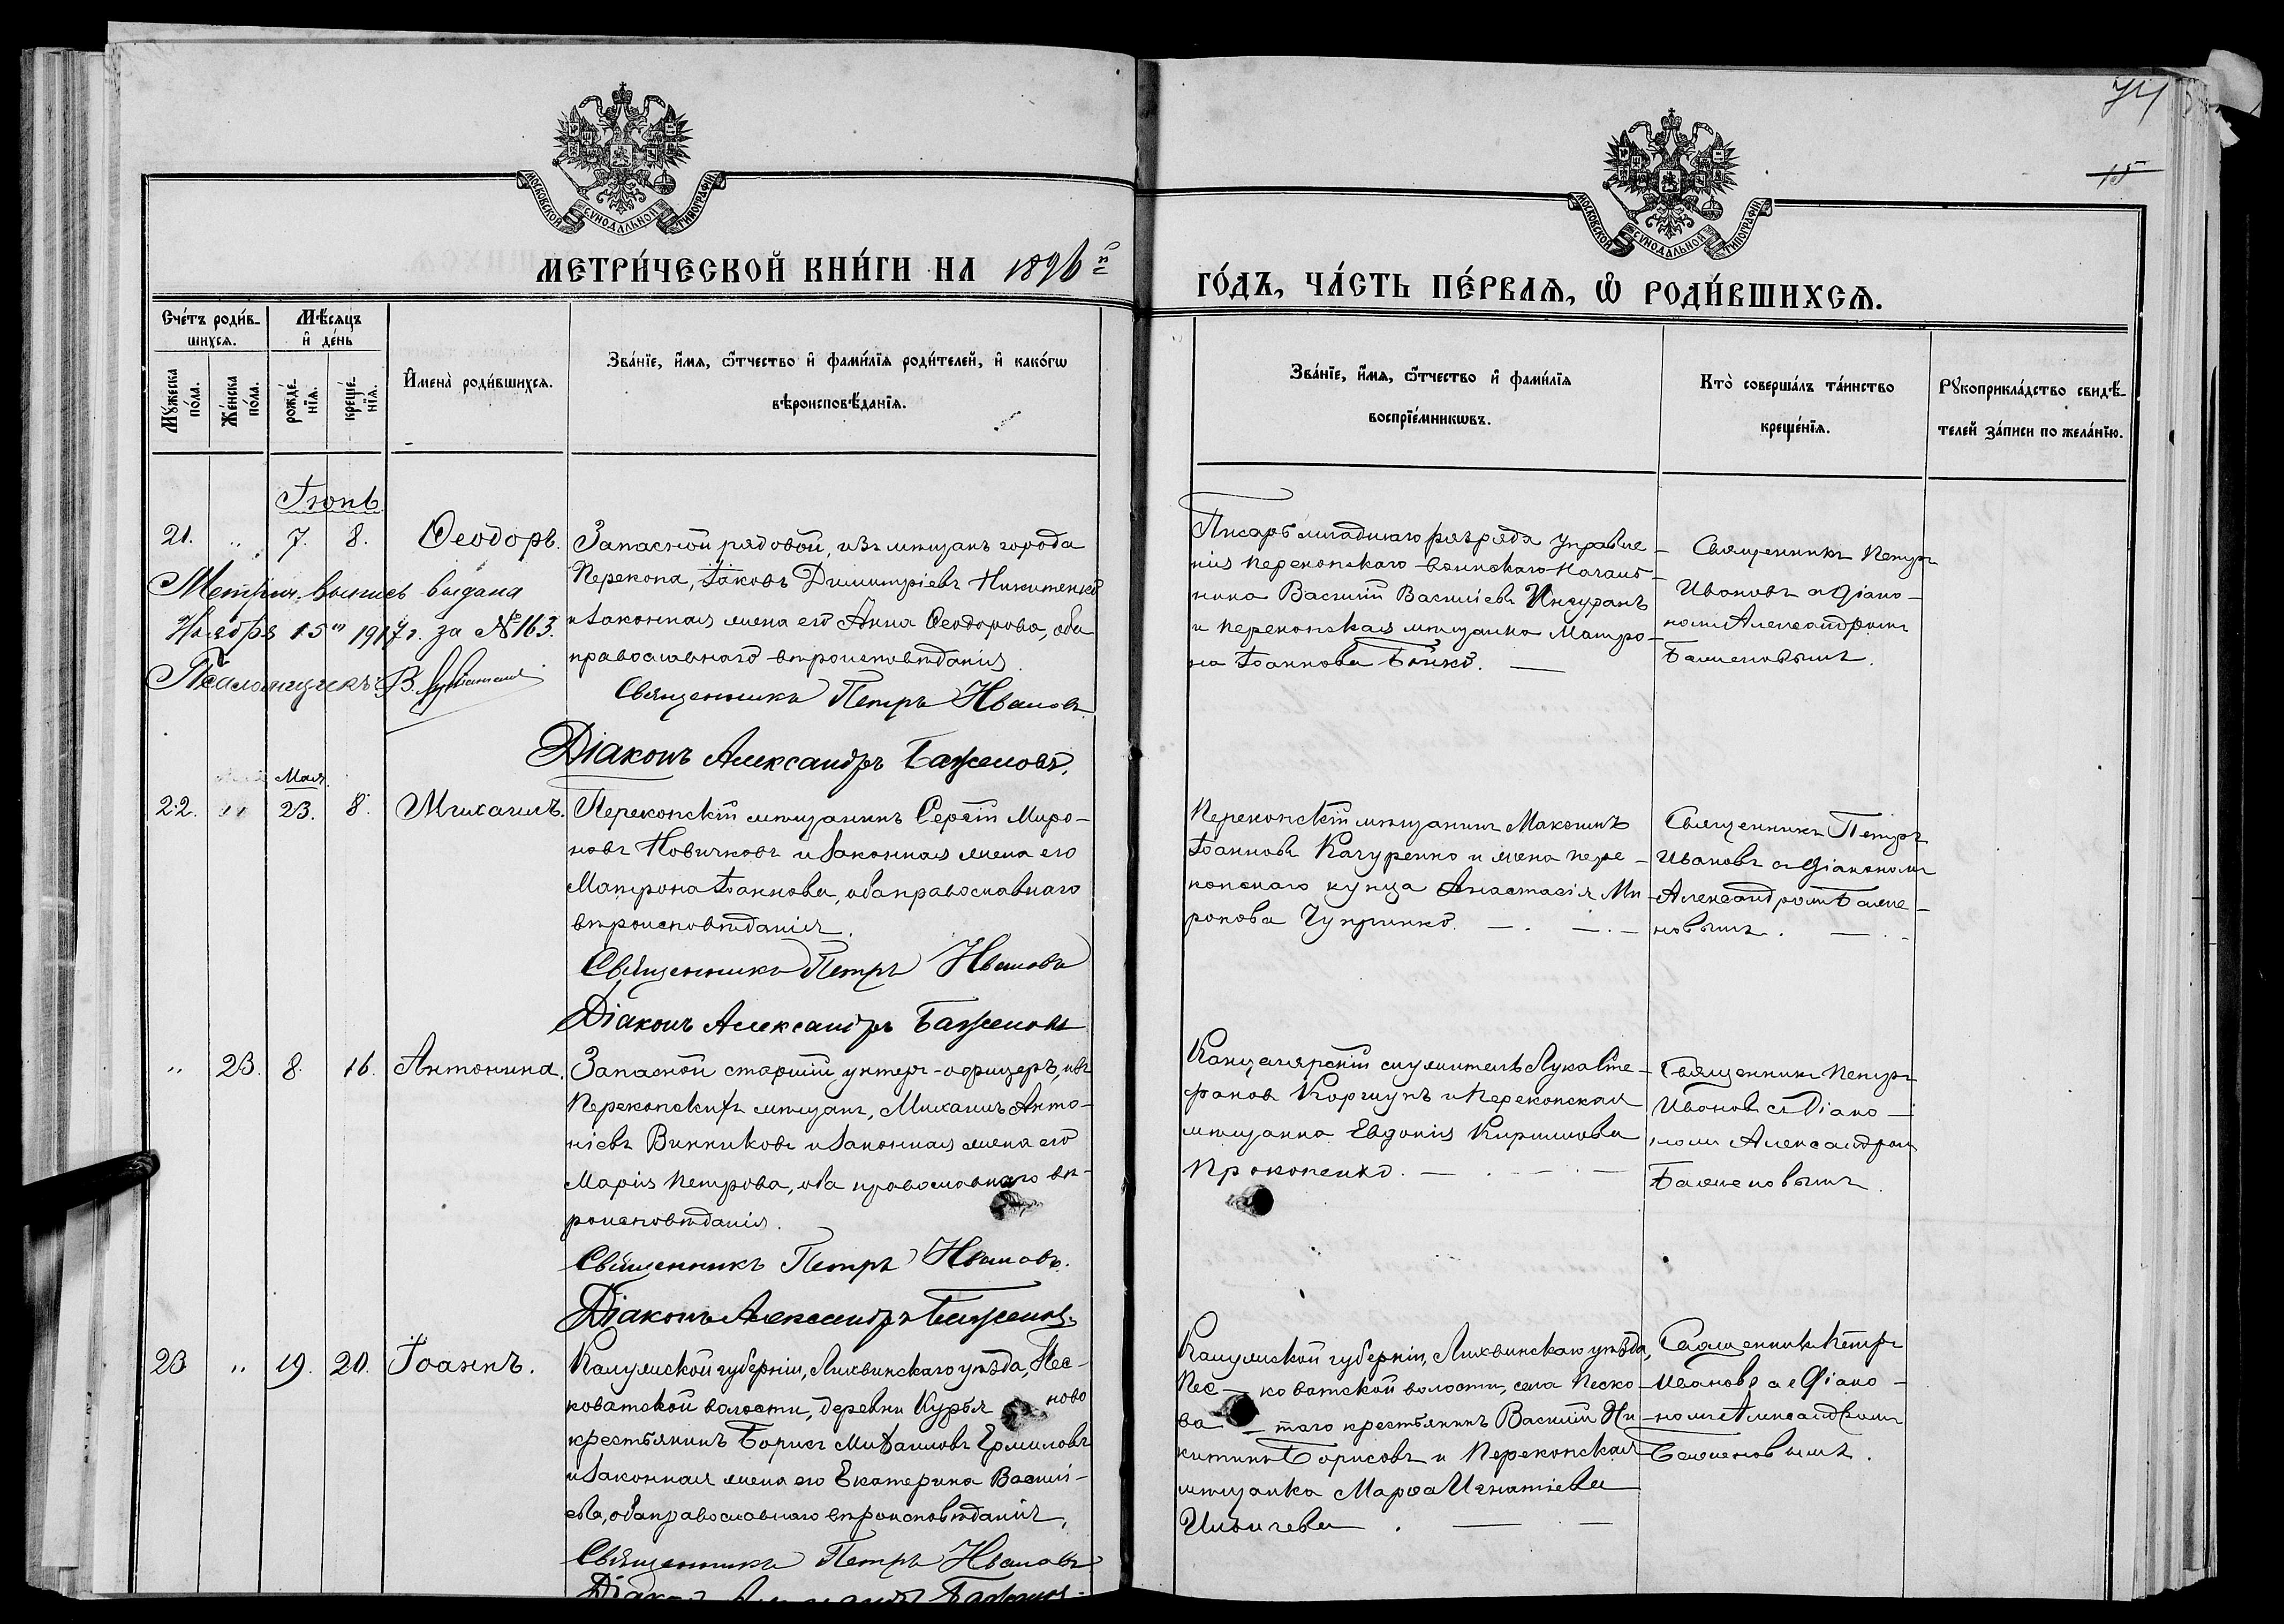 74
15
МОСКОВСКОЙ СУНОДАЛЬНОЙ ТИПОГРАФІИ
МОСКОВСКОЙ СУНОДАЛЬНОЙ ТИПОГРАФІИ
МЕТРИ́ЧЕСКОЙ КНИ́ГИ НА 1896й
ГО́ДЪ, ЧА́СТЬ ПЕ́РВАѦ, Ѡ РОДИ́ВШИХСѦ.
Сче́тъ роди́в-
шихсѧ.
Мѣ́сѧцъ
и҆ де́нь
Мꙋ́жеска
по́ла.
Же́нска
по́ла.
рожде́-
нїѧ.
креще́-
нїѧ.
И҆мена̀ роди́вшихсѧ.
Зва́нїе, и҆́мѧ, ѻ҆́тчество и҆ фами́лїѧ роди́телей, и҆ како́гѡ
вѣроисповѣ́данїѧ.
Зва́нїе, и҆́мѧ, ѻ҆́тчество и҆ фами́лїѧ
воспрїе́мникѡвъ.
Кто̀ соверша́лъ та́инство
креще́нїѧ.
Рꙋкоприкла́дство свидѣ́-
телей за́писи по жела́нїю.
Іюнь
21. „ 7. 8. Ѳеодоръ.
Запасной рядовой, изъ мѣщанъ города
Перекопа, Іаковъ Димитріевъ Никитенко
и законная жена его Анна Ѳеодорова, оба
православнаго вѣроисповѣданія.
Священникъ Петръ Ивановъ.
Діаконъ Александръ Баженовъ.
Метрич. выпись выдана
Ноября 15го 1917 г. за № 163.
Псаломщикъ В.
Писарь младшаго разряда Управле-
нія Перекопскаго воинскаго Началь-
ника Василій Васильевъ
и перекопская мѣщанка Матро-
на Іоаннова Бойко.
Священникъ Петръ
Ивановъ съ діако-
номъ Александромъ
Баженовымъ.
Мая
22. „ 23. 8. Михаилъ.
Перекопскій мѣщанинъ Сергій Миро-
новъ Новичковъ и законная жена его
Матрона Іоаннова, оба православнаго
вѣроисповѣданія.
Священникъ Петръ Ивановъ
Діаконъ Александръ Баженовъ
Перекопскій мѣщанинъ Максимъ
Іоанновъ Качуренко и жена пере-
копскаго купца Анастасія Ми-
ронова Чупринко.
Священникъ Петръ
Ивановъ съ діакономъ
Александромъ Баже-
новымъ.
„ 23. 8. 16. Антонина.
Запасной старшій унтеръ-офицеръ, изъ
Перекопскихъ мѣщанъ, Михаилъ Анто-
ніевъ Винниковъ и законная жена его
Марія Петрова, оба православнаго вѣ-
роисповѣданія.
Священникъ Петръ Ивановъ.
Діаконъ Александръ Баженовъ.
Канцелярскій служитель Лука Сте-
фановъ Коршунъ и Перекопская
мѣщанка Евдокія Кириллова
Прокопенко.
Священникъ Петръ
Ивановъ съ Діако-
номъ Александромъ
Баженовымъ.
23 „ 19. 20. Іоаннъ.
Калужской губерніи, Лихвинскаго уѣзда, Пес-
коватской волости, деревни Курья ново
крестьянинъ Борисъ Михаиловъ Ермиловъ
и законная жена его Екатерина Василі-
ева, оба православнаго вѣроисповѣданія.
Священникъ Петръ Ивановъ
Діаконъ Александръ Баженовъ.
Калужской губерніи, Лихвинскаго уѣзда,
Пес-коватской волости, села Песко-
ва-таго крестьянинъ Василій Ни-
китинъ Борисовъ и Перекопская
мѣщанка Марѳа Игнатіева
Священникъ Петръ
Ивановъ съ діако-
номъ Александромъ
Баженовымъ.